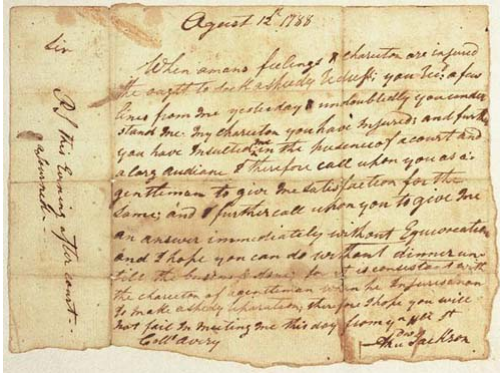 Agust 12th 1788
Sir
When amans feelings & charector are injured
he ought to seek aspeedy redress; you rec. a few
lines from me yesterday & undoubtedly you under
stand me. My charector you have Injured; and further
you have Insulted me in the presence of a court and
a larg audianc I therefore call upon you as a
gentleman to give me satisfaction for the
same; and I further call upon you to give me
an answer immediately without Equivocation
and I hope you can do without dinner un
till the business done; for it is consistant with
the charector of agentleman when he Injures aman
to make aspedy reparation; therefore I hope you will
not fail in meeting me this day from yr Hbl st
Andw Jackson
Coll Avery
P.S this Evening after court
adjourned